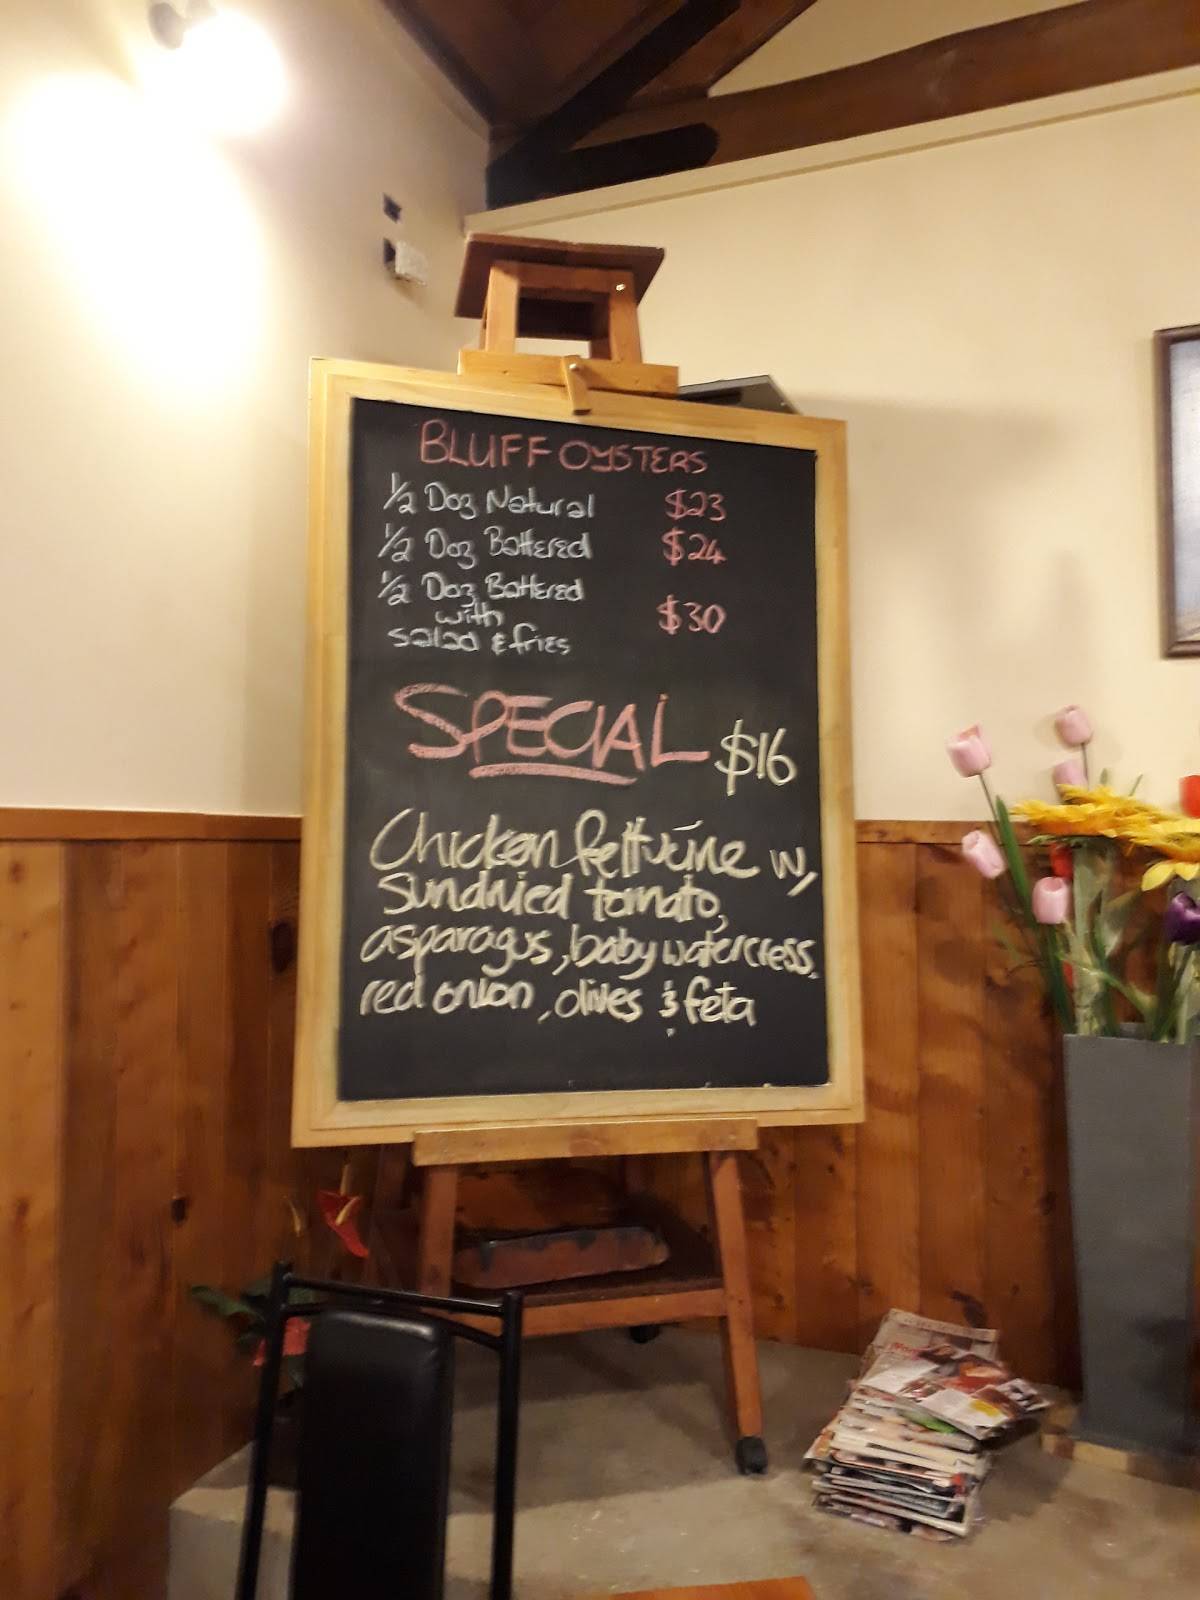 BLUFF OYSTERS
1/2 Doz Natural $23
1/2 Doz Battered $24
1/2 Doz Battered
with $30
salad & fries
SPECIAL $16
Chicken fettucine w/
sundried tomato,
asparagus, baby watercress,
red onion, olives & feta